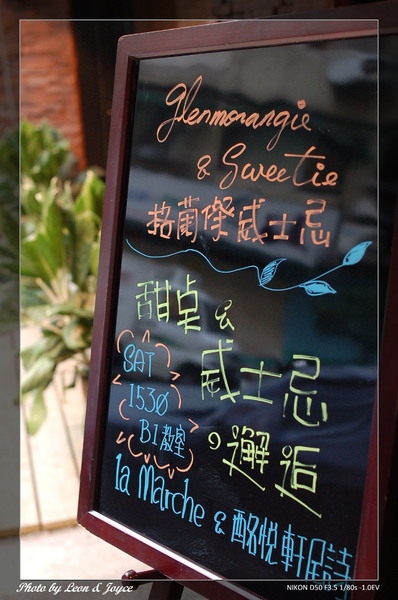 Glenmorangie
& Sweetie
格蘭傑威士忌
甜桌 &
威士忌
的邂逅
SAT
1530
B1教室
la Marche & 酩悅軒尼詩
Photo by Leon & Joyce
NIKON D50 F3.5 1/80s -1.0EV